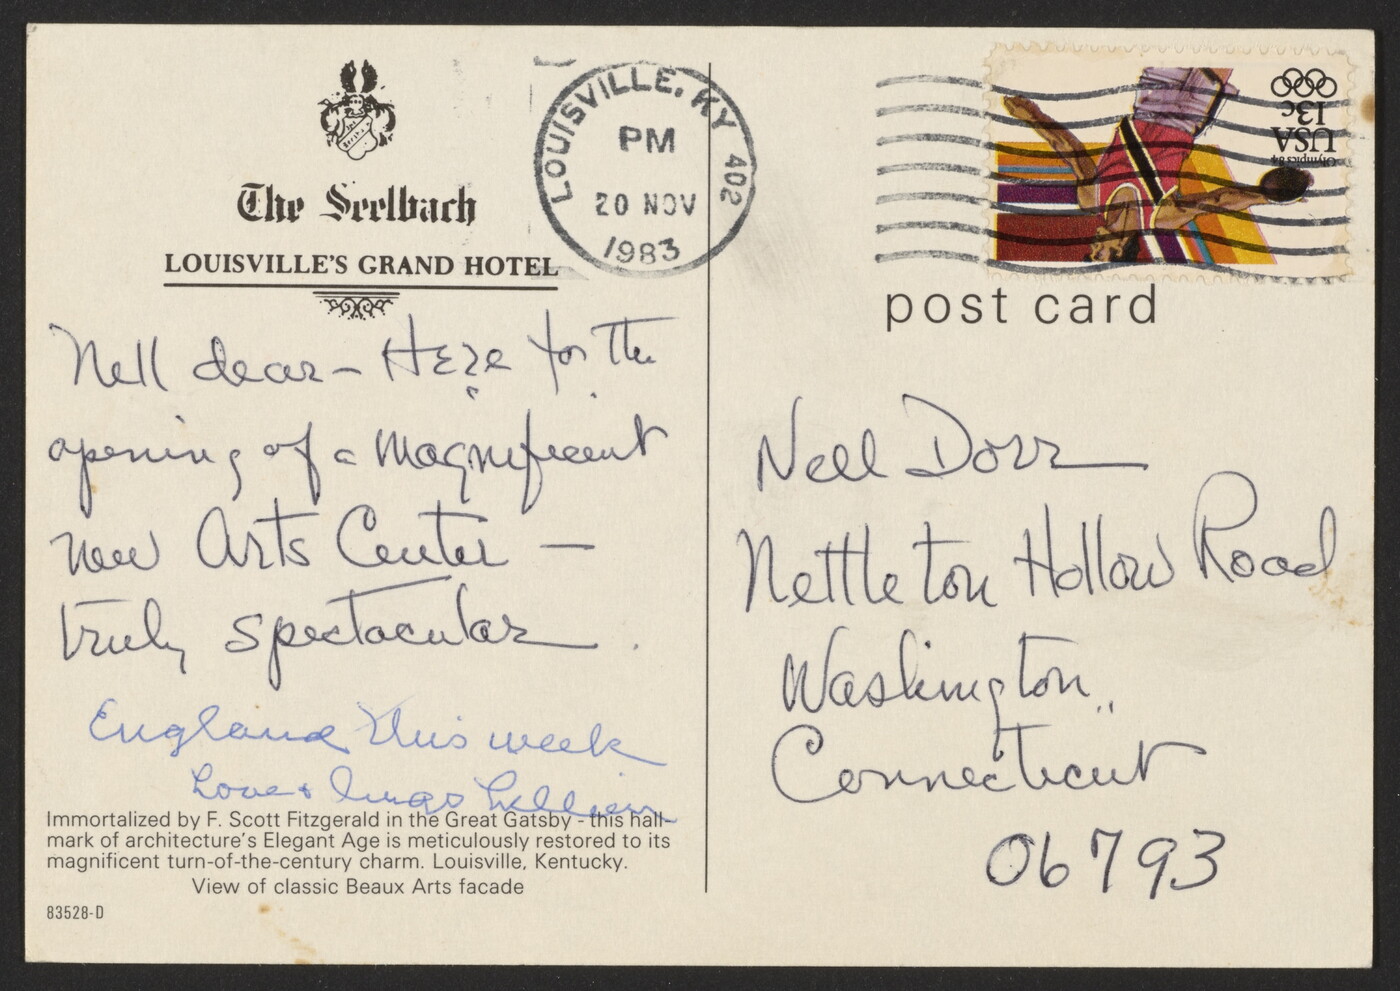 The Seelbach
LOUISVILLE'S GRAND HOTEL
LOUISVILLE, KY 402
PM
20 NOV
1983
Olympics 84
USA
13c
post card
Nell dear – Here for the
opening of a magnificent
new Arts Center –
truly spectacular.
England this week
Love + hugs Lillian
Immortalized by F. Scott Fitzgerald in the Great Gatsby - this hall-
mark of architecture's Elegant Age is meticulously restored to its
magnificent turn-of-the-century charm. Louisville, Kentucky.
View of classic Beaux Arts facade
83528-D
Nell Dorr
Nettleton Hollow Road
Washington,
Connecticut
06793